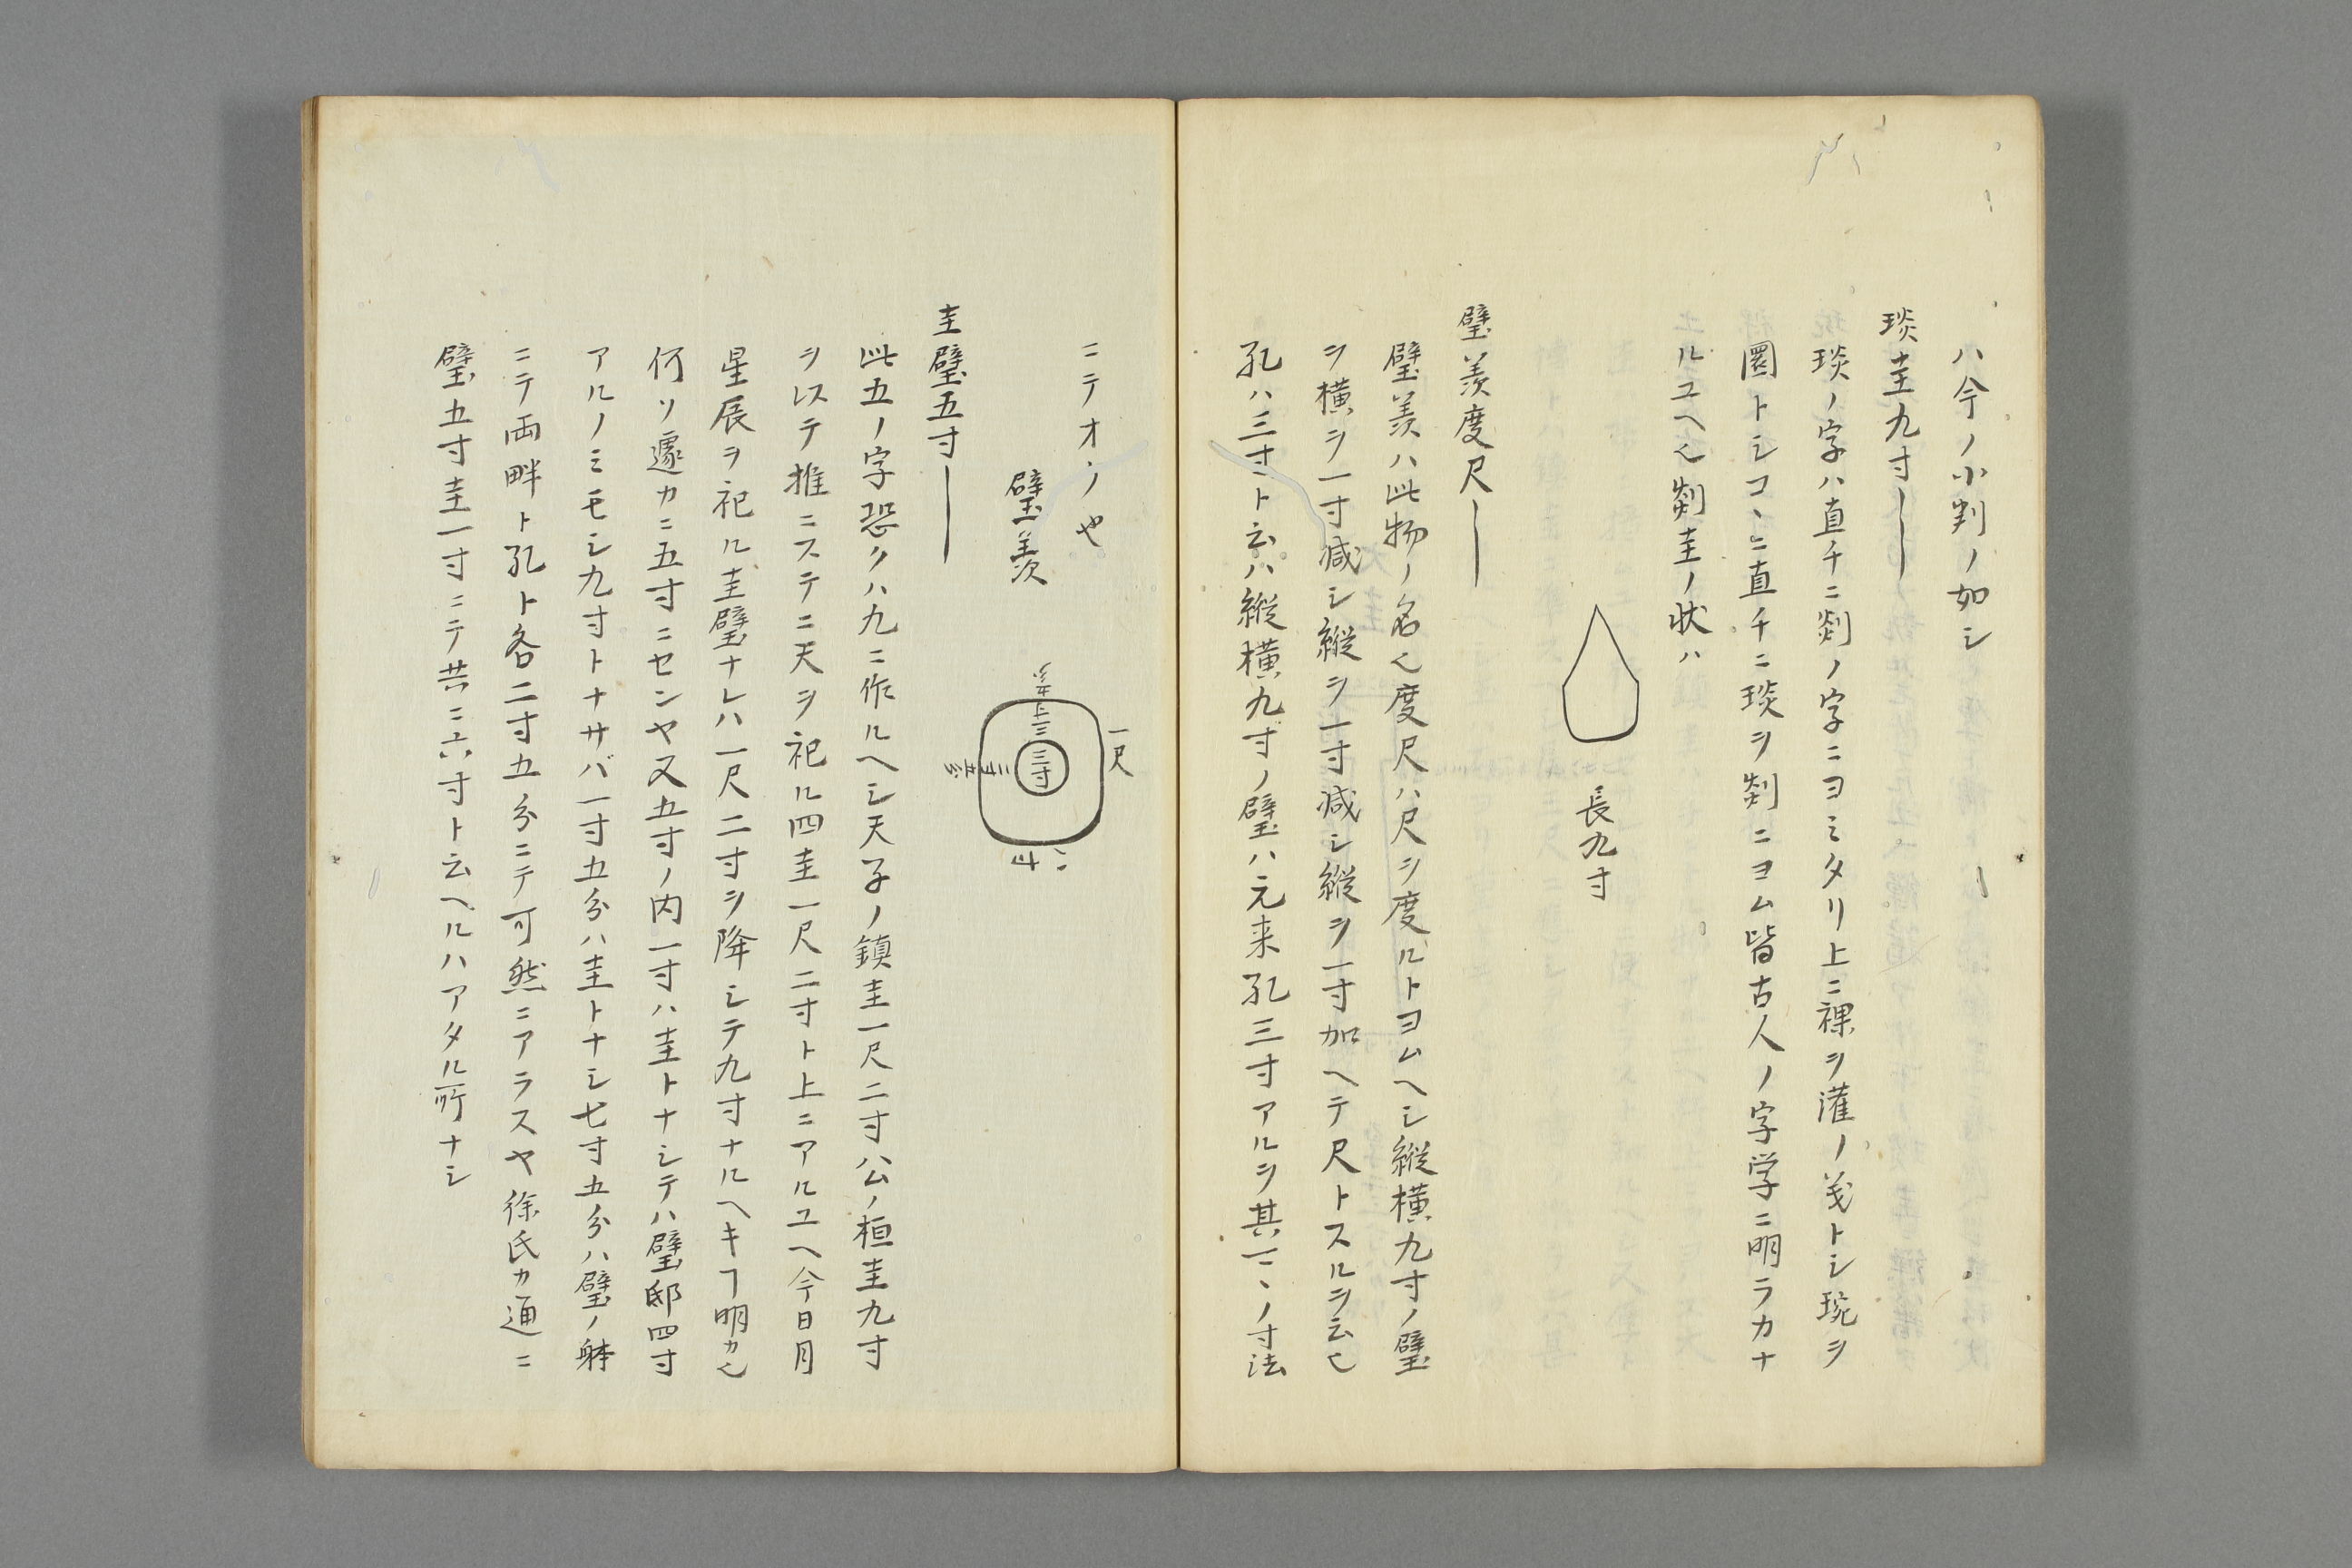 ハ今ノ小判ノ如シ
琰圭九寸――
琰ノ字ハ直チニ剡ノ字ニヨミタリ上ニ裸ヲ灌ノ義トシ琬ヲ
圜トシコヽニ直チニ琰ヲ剡ニヨム皆古人ノ字学ニ明ラカナ
ルユヘ也剡圭ノ状ハ
長九寸
璧羨度尺――
璧羨ハ此物ノ名也度尺ハ尺ヲ度ルトヨムヘシ縦横九寸ノ璧
ヲ横ヲ一寸減シ縦ヲ一寸減シ縦ヲ一寸加ヘテ尺トスルヲ云也
孔ハ三寸ト云ハ縦横九寸ノ璧ハ元来孔三寸アルヲ其一ヽノ寸法
ニテオノ也
璧羨
一尺
三寸
圭璧五寸――
此五ノ字恐クハ九ニ作ルヘシ天子ノ鎮圭一尺二寸公ノ桓圭九寸
ヲ以テ推ニステニ天ヲ祀ル四圭一尺二寸ト上ニアルユヘ今日月
星辰ヲ祀ル圭璧ナレハ一尺二寸ヲ降シテ九寸ナルヘキヿ明カ也
何ソ遽カニ五寸ニセンヤ又五寸ノ内一寸ハ圭トナシテハ璧邸四寸
アルノミモシ九寸トナサバ一寸五分ハ圭トナシ七寸五分ハ璧ノ躰
ニテ両畔ト孔ト各二寸五分ニテ可然ニアラスヤ徐氏カ通ニ
璧五寸圭一寸ニテ共ニ六寸ト云ヘルハアタル所ナシ